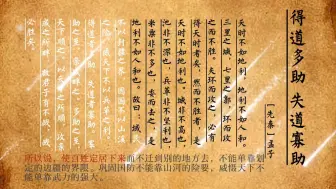 得道多助 失道寡助
[先秦]孟子
天时不如地利,地利不如人和。
三里之城,七里之郭,环而攻
之而不胜。夫环而攻之,必有
得天时者矣,然而不胜者,是
天时不如地利也。城非不高也,
池非不深也,兵革非不坚利也,米
粟非不多也,委而去之,是
地利不如人和也。故曰:域民
不以封疆之界,固国不以山溪
之险,威天下不以兵革之利。
得道者多助,失道者寡助。寡
助之至,亲戚畔之。多助之至,
天下顺之。以天下之所顺,攻亲
戚之所畔,故君子有不战,战
必胜矣。
所以说,使百姓定居下来而不迁到别的地方去,不能单靠划
定的边疆的界限,巩固国防不能靠山河的险要,威慑天下不
能单靠武力的强大。